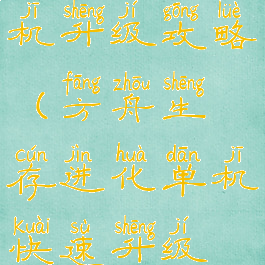 jī shēng jí gōng lüè
机升级攻略
fāng zhōu shēng
(方舟生
cún jìn huà dān jī
存进化单机
kuài sù shēng jí
快速升级